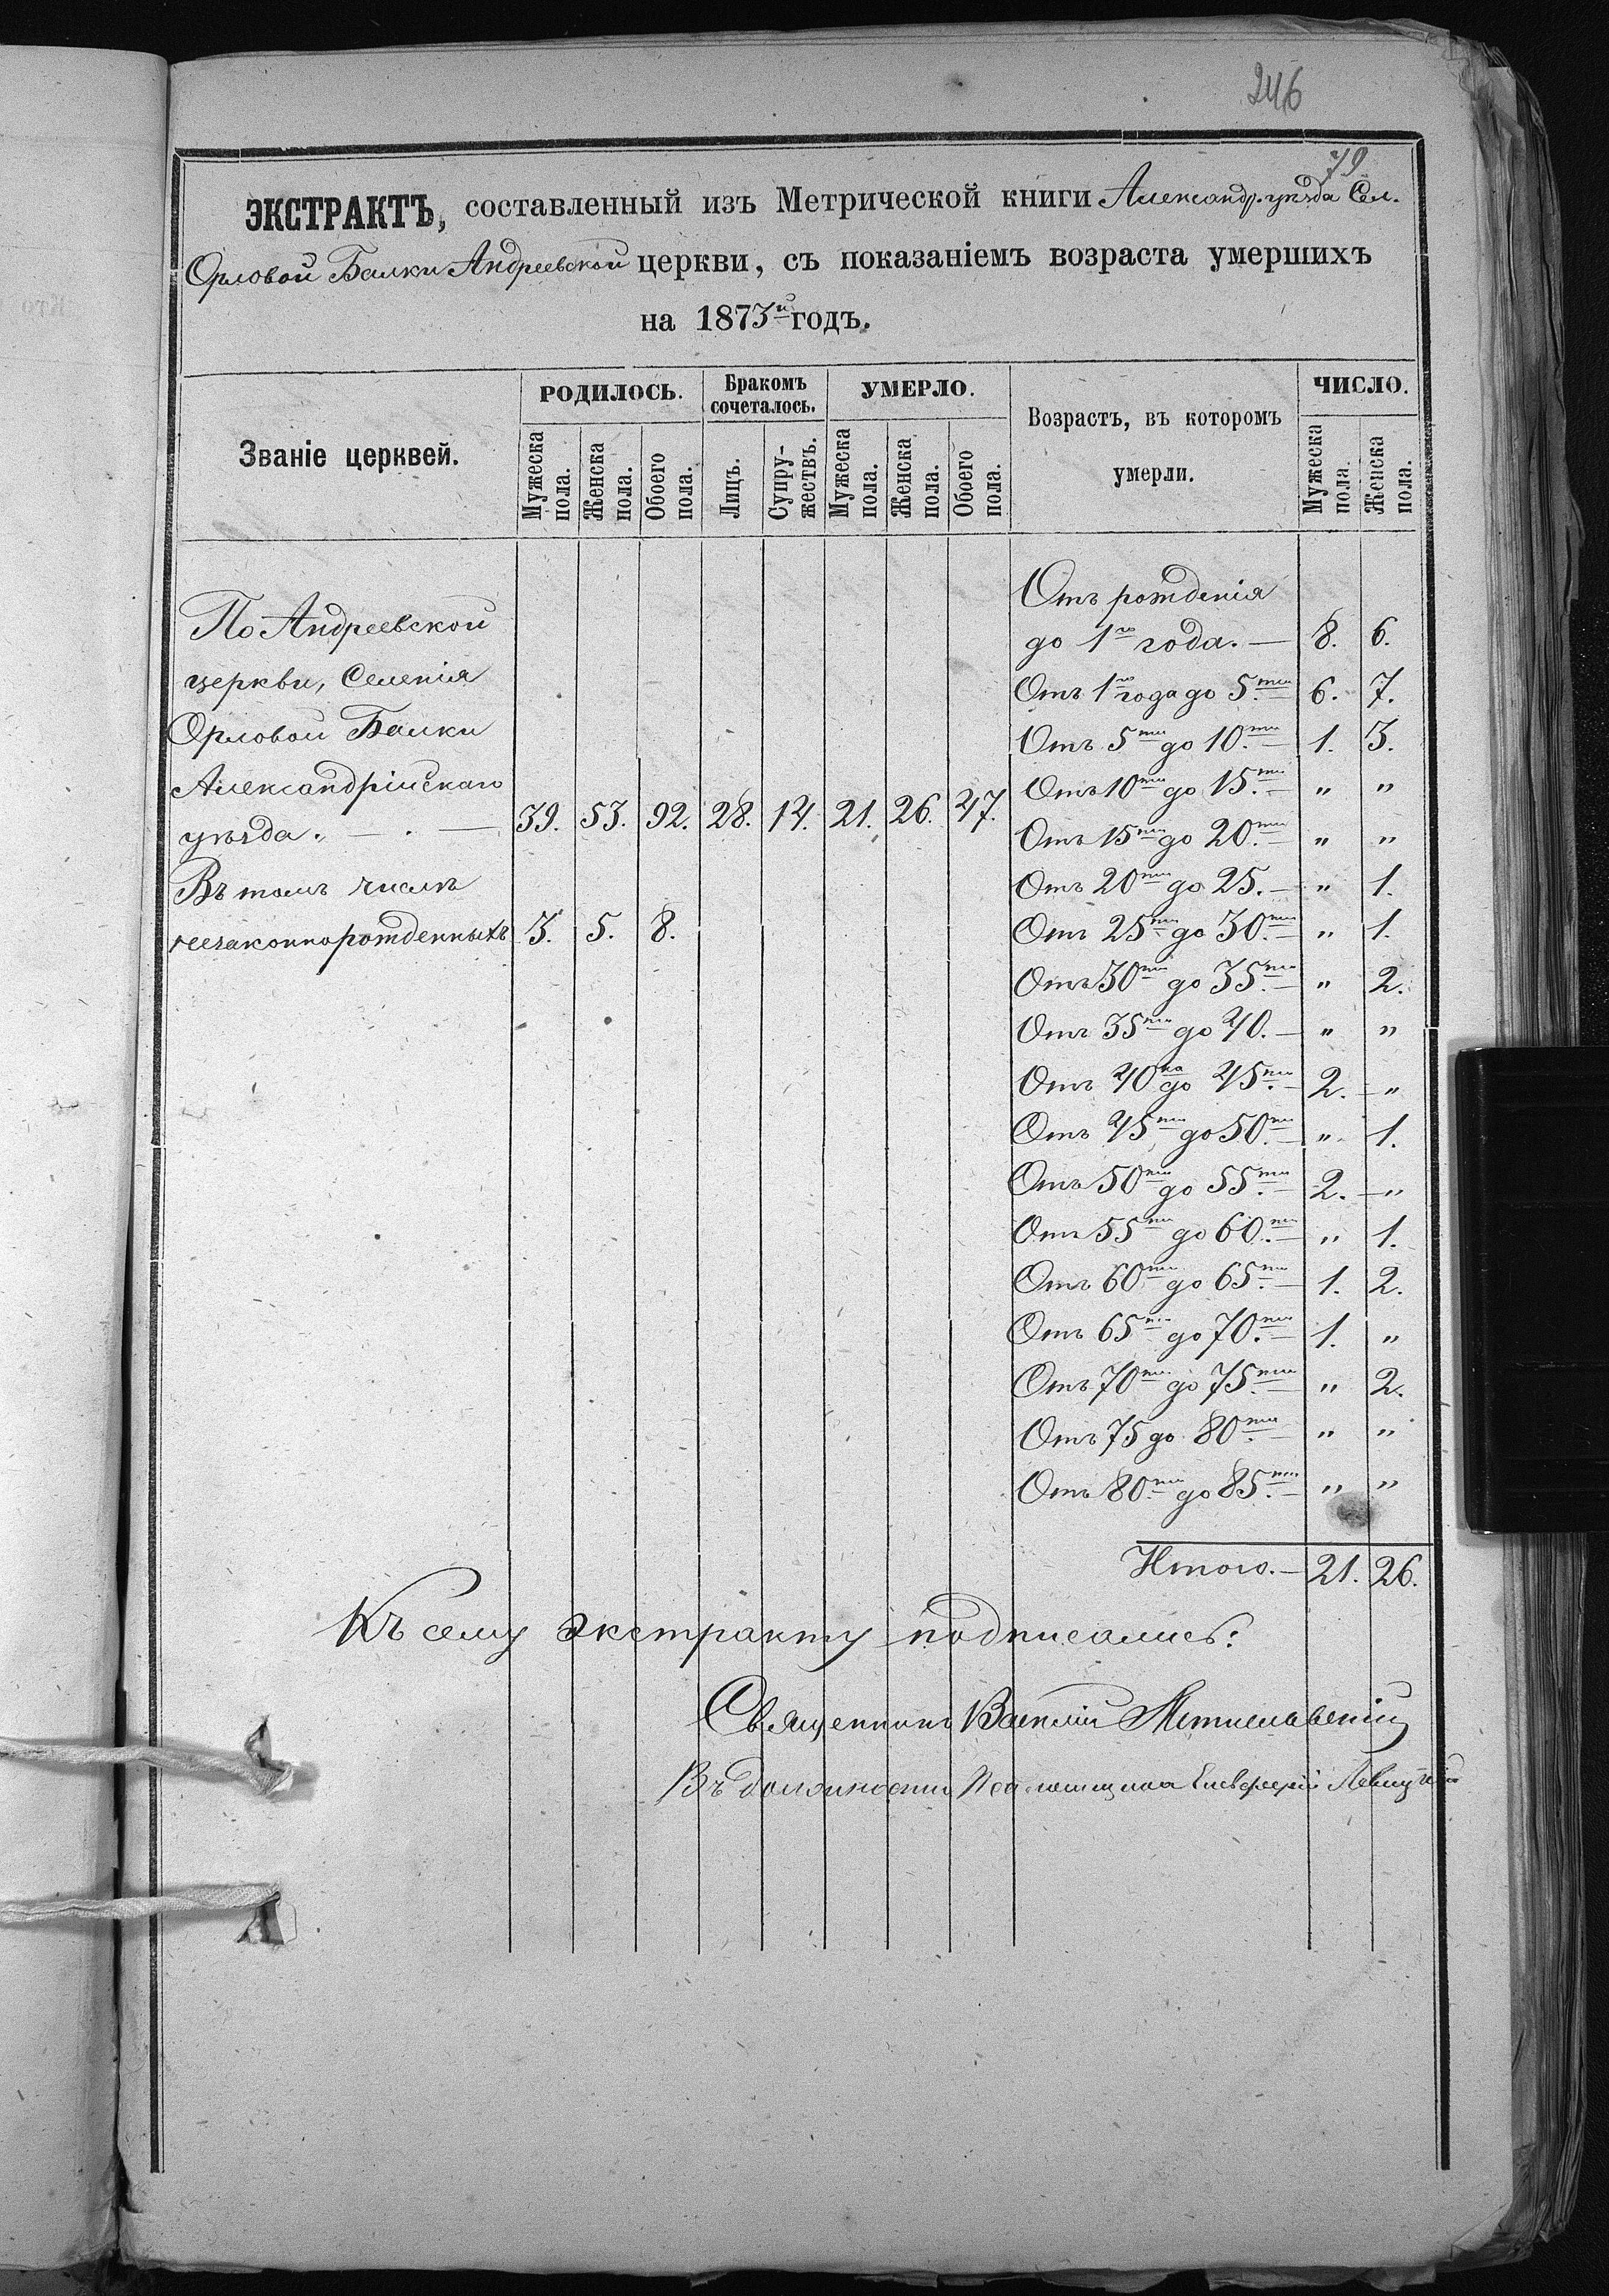 246
79
ЭКСТРАКТЪ, составленный изъ Метрической книги Александр. уѣзда Сел.
Орловой Балки Андреевской церкви, съ показаніемъ возраста умершихъ
на 1873й годъ.
Званіе церквей.
РОДИЛОСЬ.
Мужеска пола.
Женска пола.
Обоего пола.
Бракомъ сочеталось.
Лицъ.
Супружествъ.
УМЕРЛО.
Мужеска пола.
Женска пола.
Обоего пола.
Возрастъ, въ которомъ
умерли.
ЧИСЛО.
Мужеска пола.
Женска пола.
По Андреевской
церкви, Селенія
Орловой Балки
Александрійскаго
уѣзда. — . — 39. 53. 92. 28. 14. 21. 26. 47.
Въ томъ числѣ
незаконнорожденныхъ 3. 5. 8.
Отъ рожденія
до 1го года. — 8. 6.
Отъ 1го года до 5ти — 6. 7.
Отъ 5ти до 10ти — 1. 3.
Отъ 10ти до 15ти — " "
Отъ 15ти до 20ти — " "
Отъ 20ти до 25. — " 1.
Отъ 25ти до 30ти — " 1.
Отъ 30ти до 35ти — " 2.
Отъ 35ти до 40. — " "
Отъ 40ка до 45ти — 2. — "
Отъ 45ти до 50ти — " 1.
Отъ 50ти до 55ти — 2. — "
Отъ 55ти до 60ти — " 1.
Отъ 60ти до 65ти — 1. 2.
Отъ 65ти до 70ти — 1. "
Отъ 70ти до 75ти — " 2.
Отъ 75 до 80ти — " "
Отъ 80ти до 85ти — " "
Итого. — 21. 26.
Къ сему экстракту подписались:
Священникъ Василій Мстиславскій
Въ должности Псаломщика Елевферій Левицкій